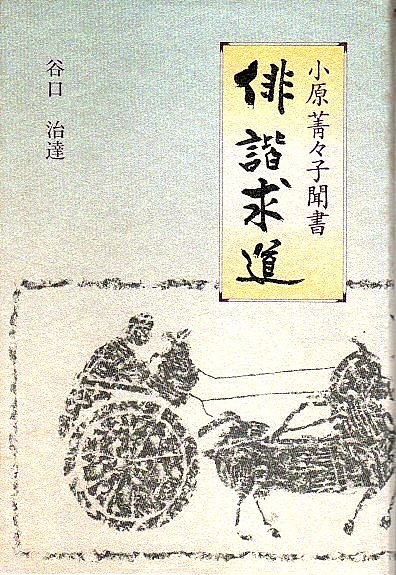 小原菁々子聞書
俳諧求道
谷口 治達